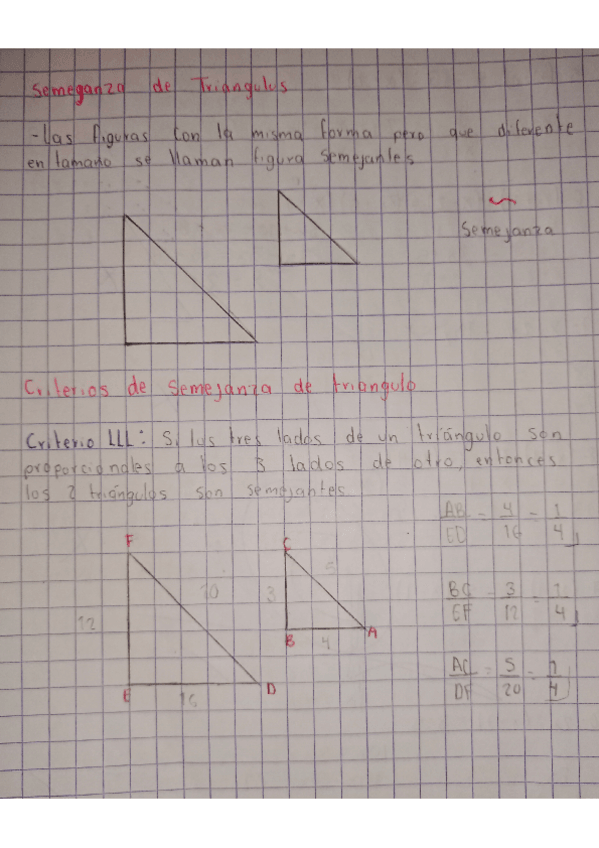 Semeganza de Triangulos
- las figuras con la misma forma pero que diferente
en tamaño se llaman figura semejantes
~
Semejanza
Criterios de Semejanza de triangulo
Criterio LLL: Si los tres lados de un triángulo son
proporcionales a los 3 lados de otro, entonces
los 2 triángulos son semejantes
AB/ED = 4/16 = 1/4
F
C
5
20
3
BC/EF = 3/12 = 1/4
12
B
4
A
AC/DF = 5/20 = 1/4
E
16
D